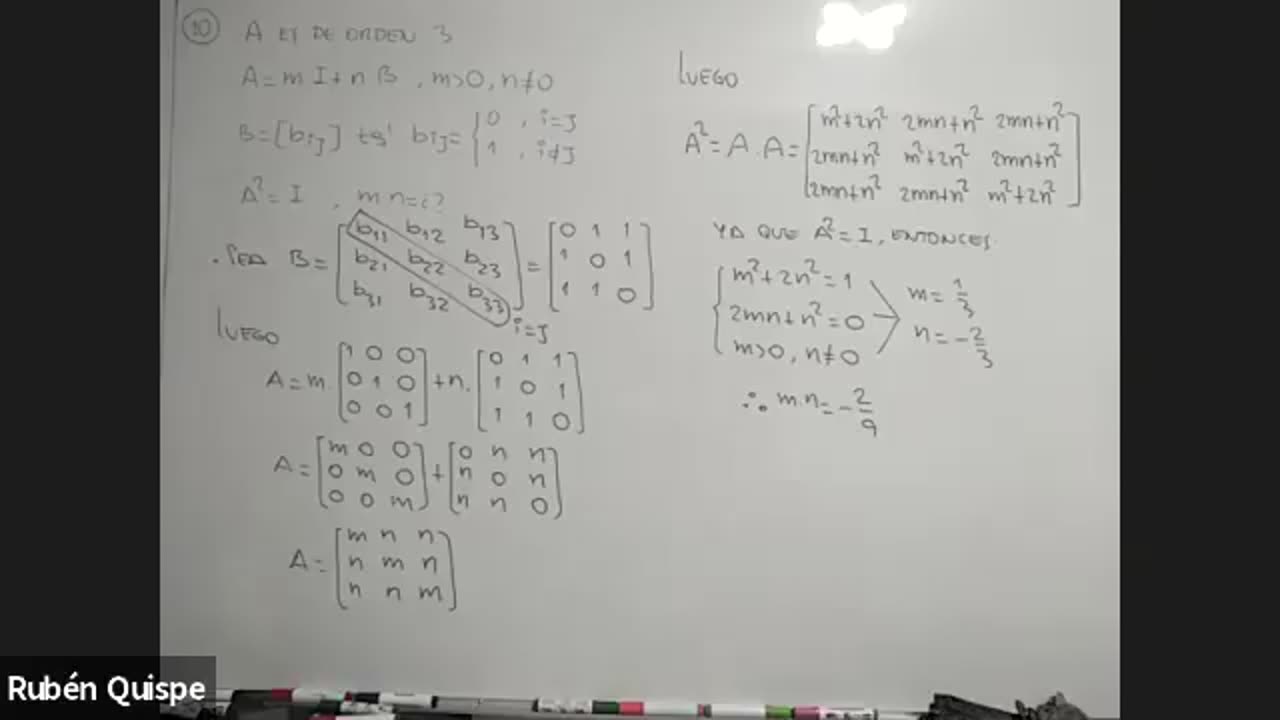 10 A ES DE ORDEN 3
A = m I + n B , m>0, n≠0
B = [bij] tq' bij = { 0 , i=j
1 , i≠j
A² = I , m n = ¿?
. SEA B = [ b11 b12 b13
b21 b22 b23
b31 b32 b33 ] = [ 0 1 1
1 0 1
1 1 0 ]
i=j
LUEGO
A = m. [ 1 0 0
0 1 0
0 0 1 ] + n. [ 0 1 1
1 0 1
1 1 0 ]
A = [ m 0 0
0 m 0
0 0 m ] + [ 0 n n
n 0 n
n n 0 ]
A = [ m n n
n m n
n n m ]
LUEGO
A² = A . A = [ m²+2n² 2mn+n² 2mn+n²
2mn+n² m²+2n² 2mn+n²
2mn+n² 2mn+n² m²+2n² ]
YA QUE A² = I, ENTONCES.
{ m²+2n² = 1
2mn+n² = 0
m>0, n≠0
m = 1/3
n = -2/3
∴ m.n = -2/9
Rubén Quispe